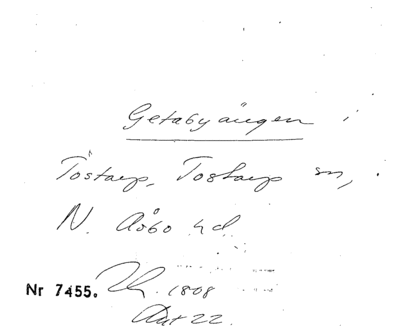 Getabyängen i
Tåstarp, Tostarp sn,
N. Åsbo hd.
Nr 7455. 1808
Akt 22.